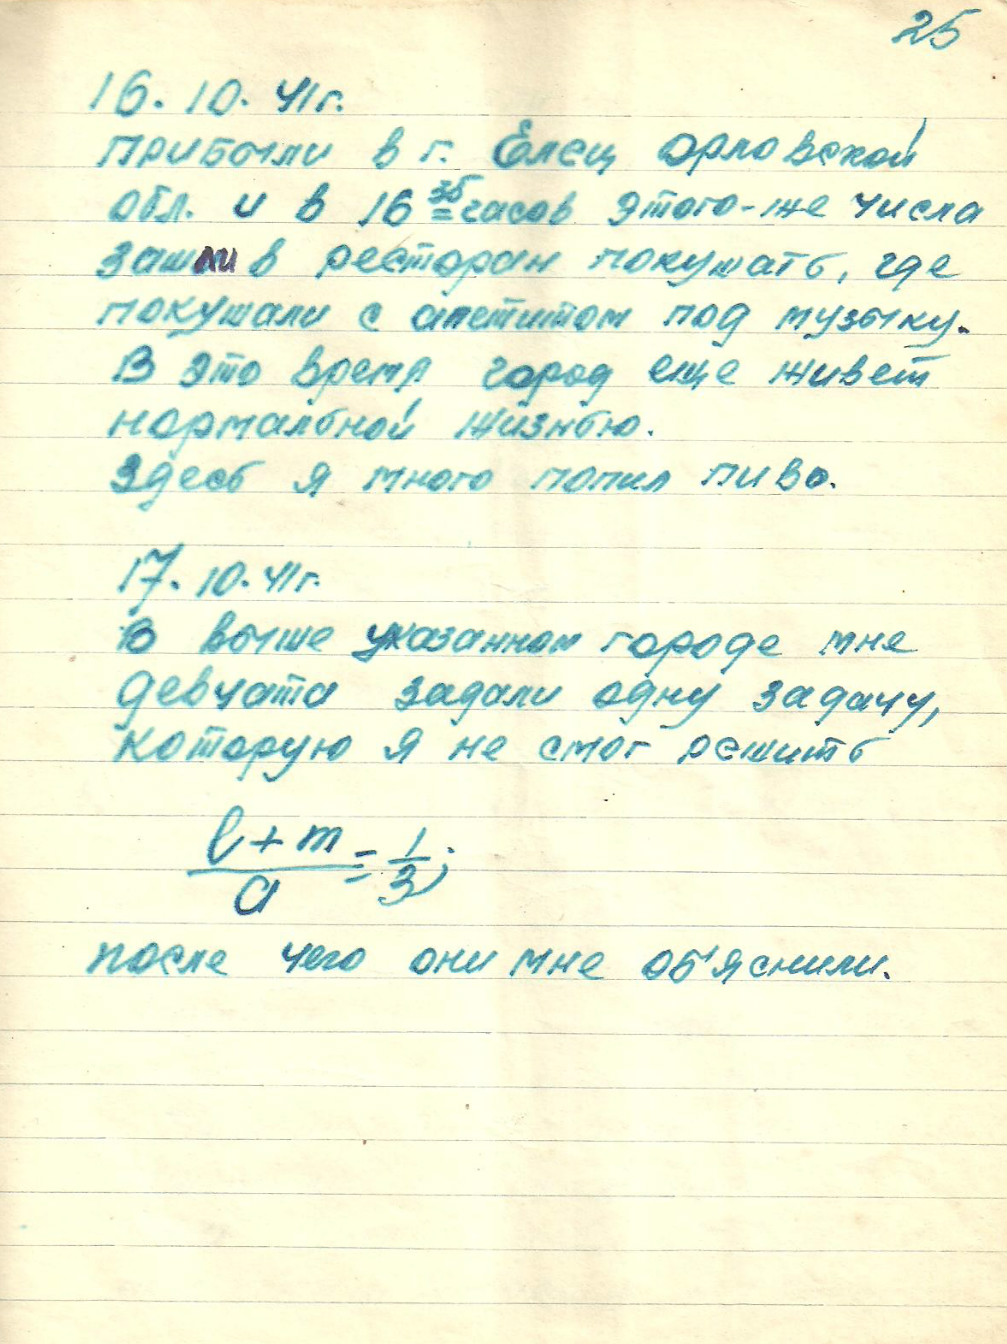 25
16. 10. 41г.
Прибыли в г. Елец Орловской
обл. и в 16 35 часов этого-же числа
зашли в ресторан покушать, где
покушали с апетитом под музыку.
В это время город еще живет
нормальной жизнью.
Здесь я много попил пиво.
17. 10. 41г.
В выше указанном городе мне
девчата задали одну задачу,
которую я не смог решить
l + m
а
= 1/3;
после чего они мне об'яснили.